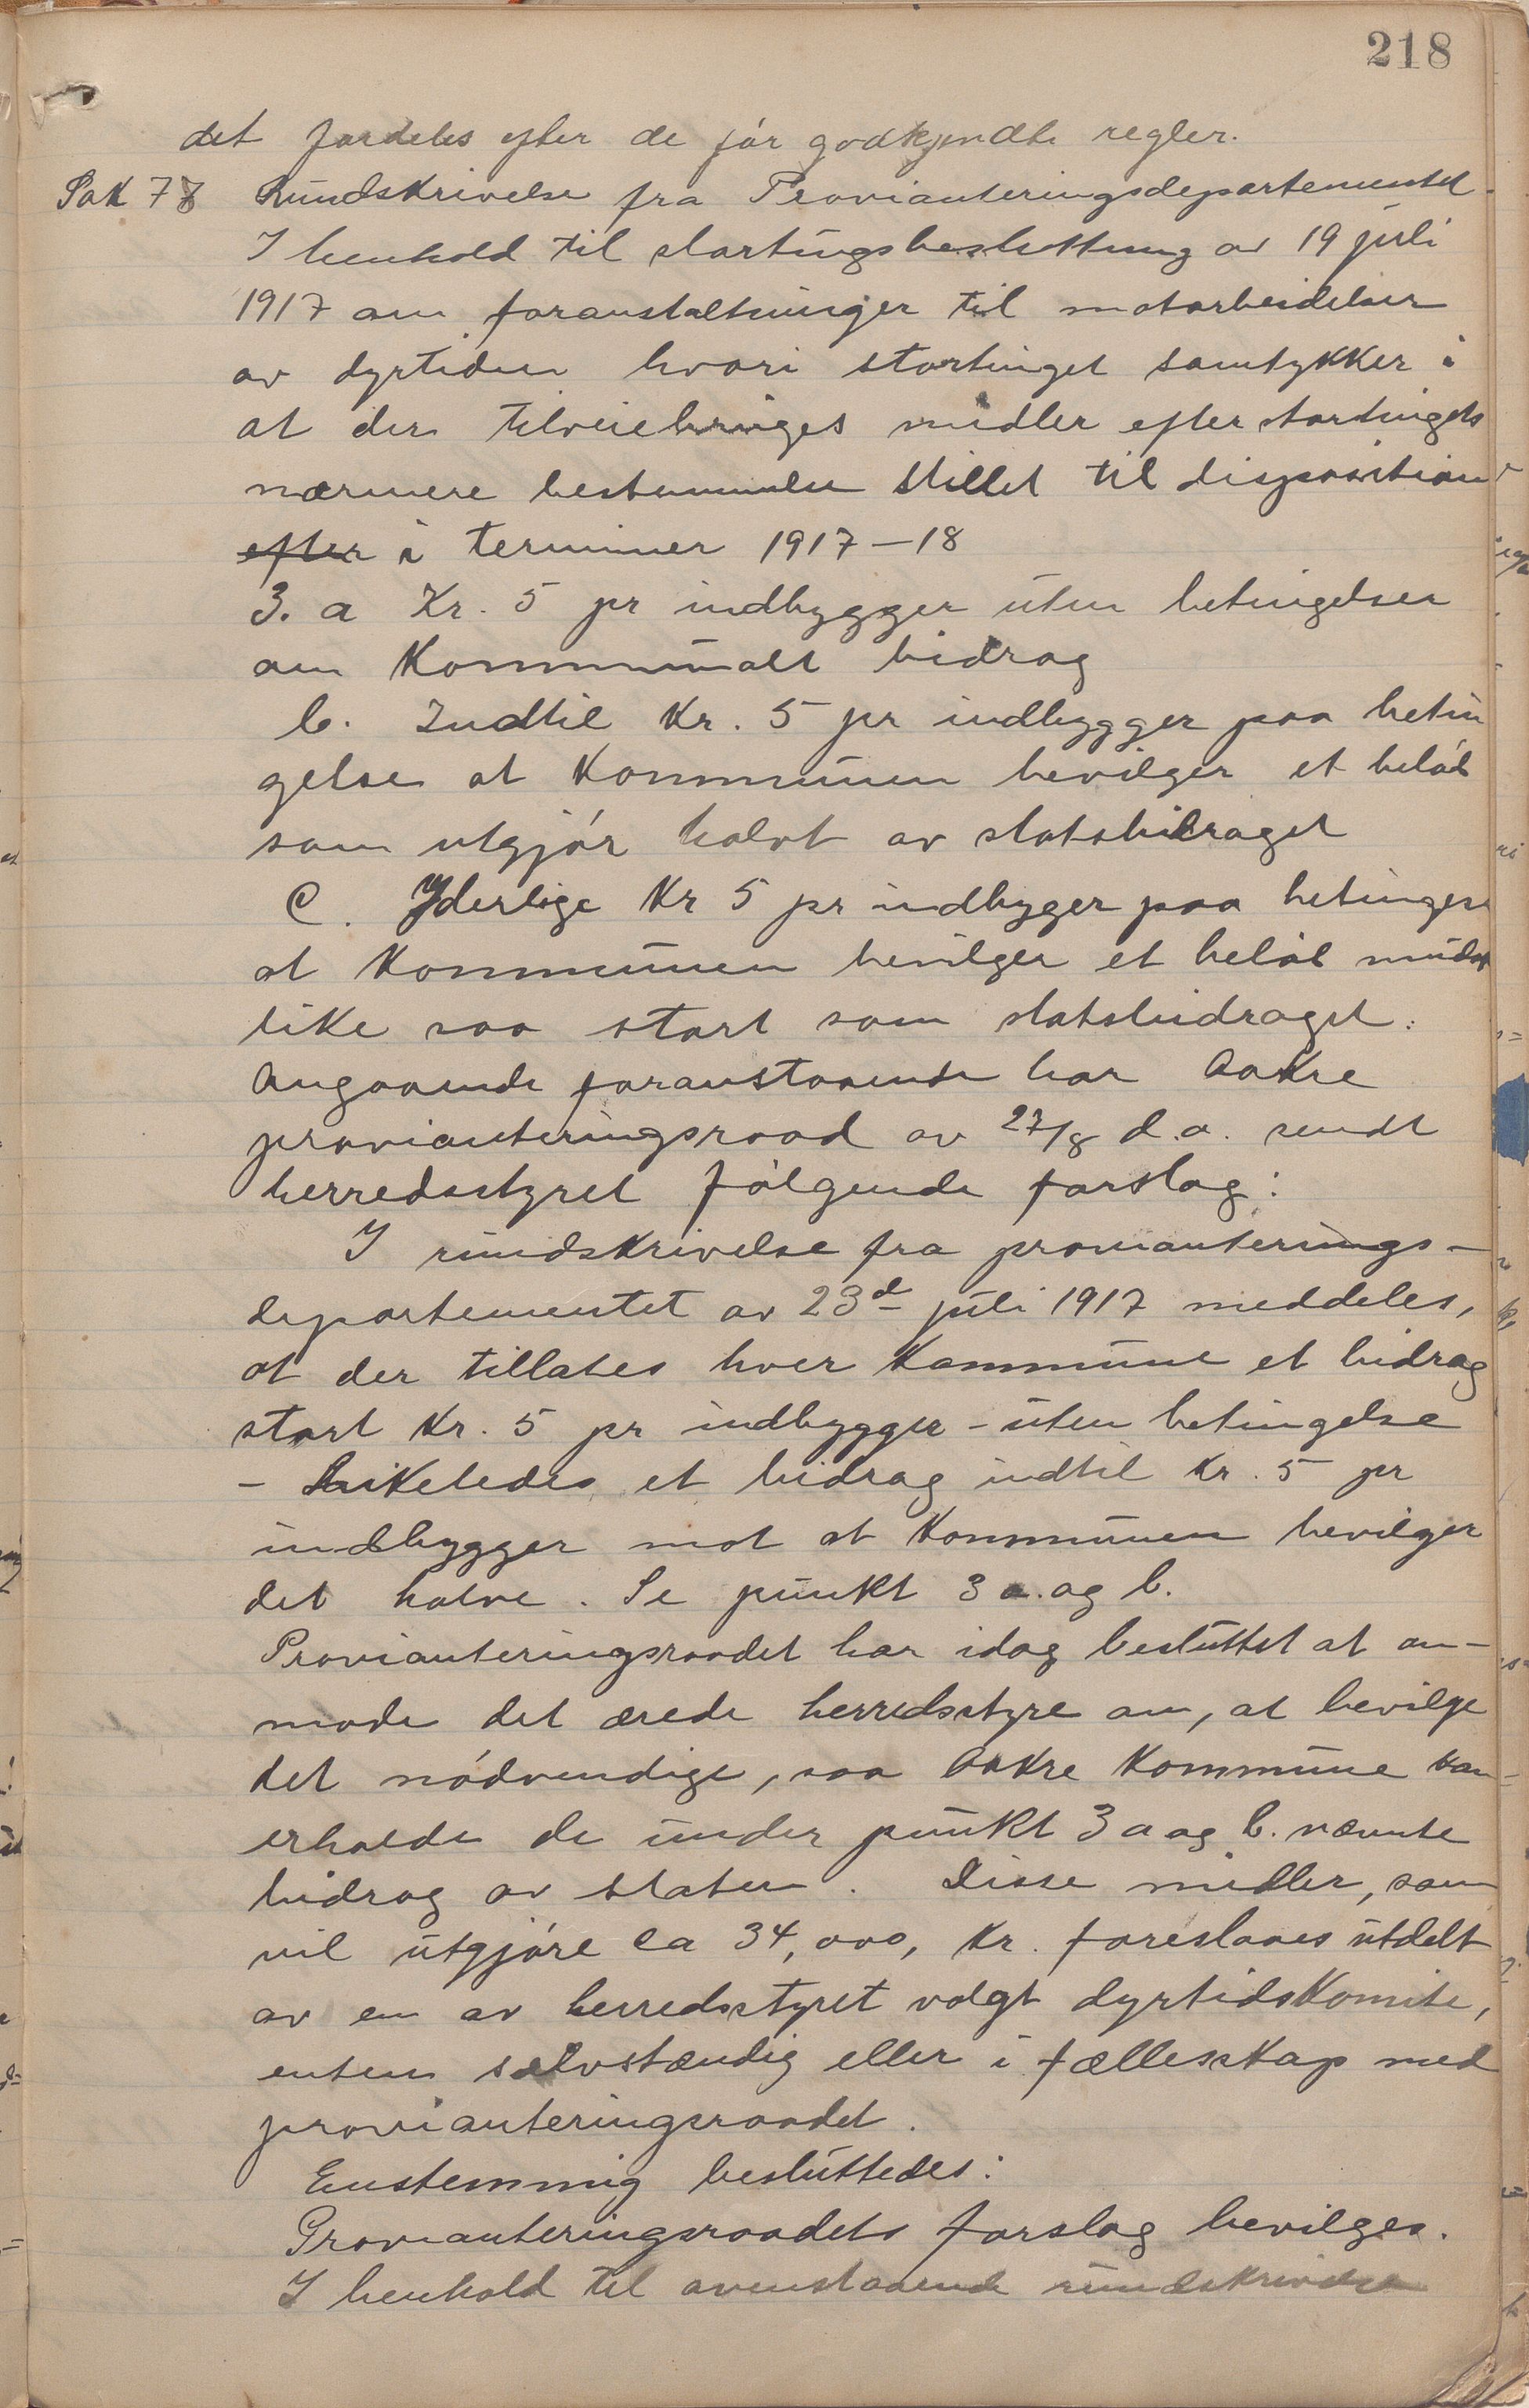 218
det fordeles efter de før godkjendte regler.
Sak 78 Rundskrivelse fra Provianteringsdepartementet.
I henhold til stortingsbeslutning av 19 juli
1917 om foranstaltninger til motarbeidelser
av dyrtiden hvori stortinget samtykker i
at der tilveiebringes midler efter stortingets
nærmere bestemmelse stillet til disposition
efter i terminer 1917–18
3. a Kr. 5 pr indbygger uten betingelser
om Kommunalt bidrag
b. Indtil Kr. 5 pr indbygger paa betin
gelse at Kommunen bevilger et beløb
som utgjør halvt av statsbidraget
C. Yderlige Kr 5 pr indbyger paa betingese
at Kommunen bevilger et beløb mindst
like saa stort som statsbidraget.
Angaaende foranstaaende har Aakre
provianteringsraad av 27/8 d.a. sendt
herredsstyret følgende forslag:
I rundskrivelse fra provianterings-
departementet av 23d juli 1917 meddeles,
at der tillates hver Kommune et bidrag
stort Kr. 5 pr indbygger - uten betingelse
- Likeledes et bidrag indtil Kr. 5 pr
indbygger mot at Kommunen bevilger
det halve. Se punkt 3 a. og b.
Provianteringsraadet har idag besluttet at an-
mode det ærede herredsstyre om, at bevilge
det nødvendige, saa Aakre Kommune kan
erholde de under punkt 3 a og b. nævnte
bidrag av staten. Disse midler, som
vil utgjøre ca 34,000, Kr. foreslaaes utdelt
av en av herredsstyret valgt dyrtidsKomite,
enten selvstændig eller i fællesskap med
provianteringsraadet.
Enstemmig besluttedes:
Provianteringsraadets forslag bevilges.
I henhold til ovenstaaende rundskrivelse